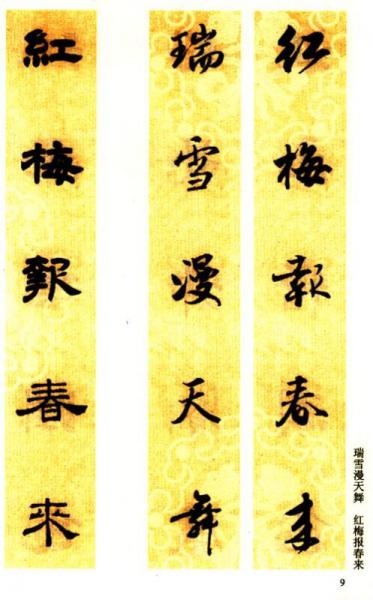 紅梅報春来
瑞雪漫天舞
紅梅報春來
瑞雪漫天舞 红梅报春来
9